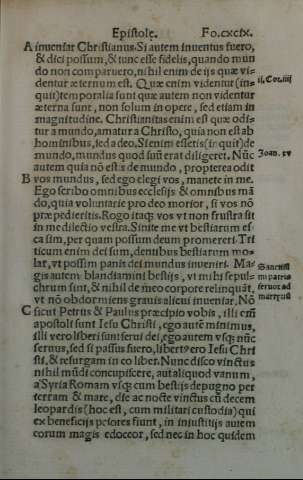 Epistolę. Fo.cxcix.
A inueniar Christianus. Si autem inuentus fuero,
& dici possum, & tunc esse fidelis, quando mun
do non comparuero, nihil enim de ijs quæ vi-
dentur æternum est. Quæ enim videntur (in-
quit) temporalia sunt quæ autem non videntur
æterna sunt, non solum in opere, sed etiam in
magnitudine. Christianitas enim est quæ odi-
tur a mundo, amatur a Christo, quia non est ab
hominibus, sed a deo. Si enim essetis (inquit) de
mundo, mundus quod suū erat diligeret. Nūc
autem quia nō estis de mundo, propterea odit
B vos mundus, sed ego elegi vos, manete in me.
Ego scribo omnibus ecclesijs & omnibus mā
do, quia voluntarie pro deo morior, si vos nō
præpedieritis. Rogo itaqꝫ vos vt non frustra sit
in me dilectio vestra. Sinite me vt bestiarum es
ca sim, per quam possum deum promereri. Tri
ticum enim dei sum, dentibus bestiarum mo-
lar, vt possim panis dei mundus inueniri. Ma-
gis autem blandiamini bestijs, vt mihi sepul-
chrum sint, & nihil de meo corpore relinquāt,
vt nō obdormiens grauis alicui inueniar. Nō
C sicut Petrus & Paulus præcipio vobis, illi eīn
apostoli sunt Iesu Christi, ego autē minimus,
illi vero liberi sunt serui dei, ego autem vsqꝫ nūc
seruus, sed si passus fuero, libert⁹ero Iesu Chri
sti, & resurgam in eo liber. Nunc disco vinctus
nihil mūdi concupiscere, aut aliquod vanum,
a Syria Romam vsqꝫ cum bestijs depugno per
terram & mare, die ac nocte vinctus cū decem
leopardis (hoc est, cum militari custodia) qui
ex beneficijs peiores fiunt, in iniustitijs autem
eorum magis edoceor, sed nec in hoc quidem
ij. Cor. iiij
Joan. xv
Sanctissi
mi patris
feruor ad
martyriū